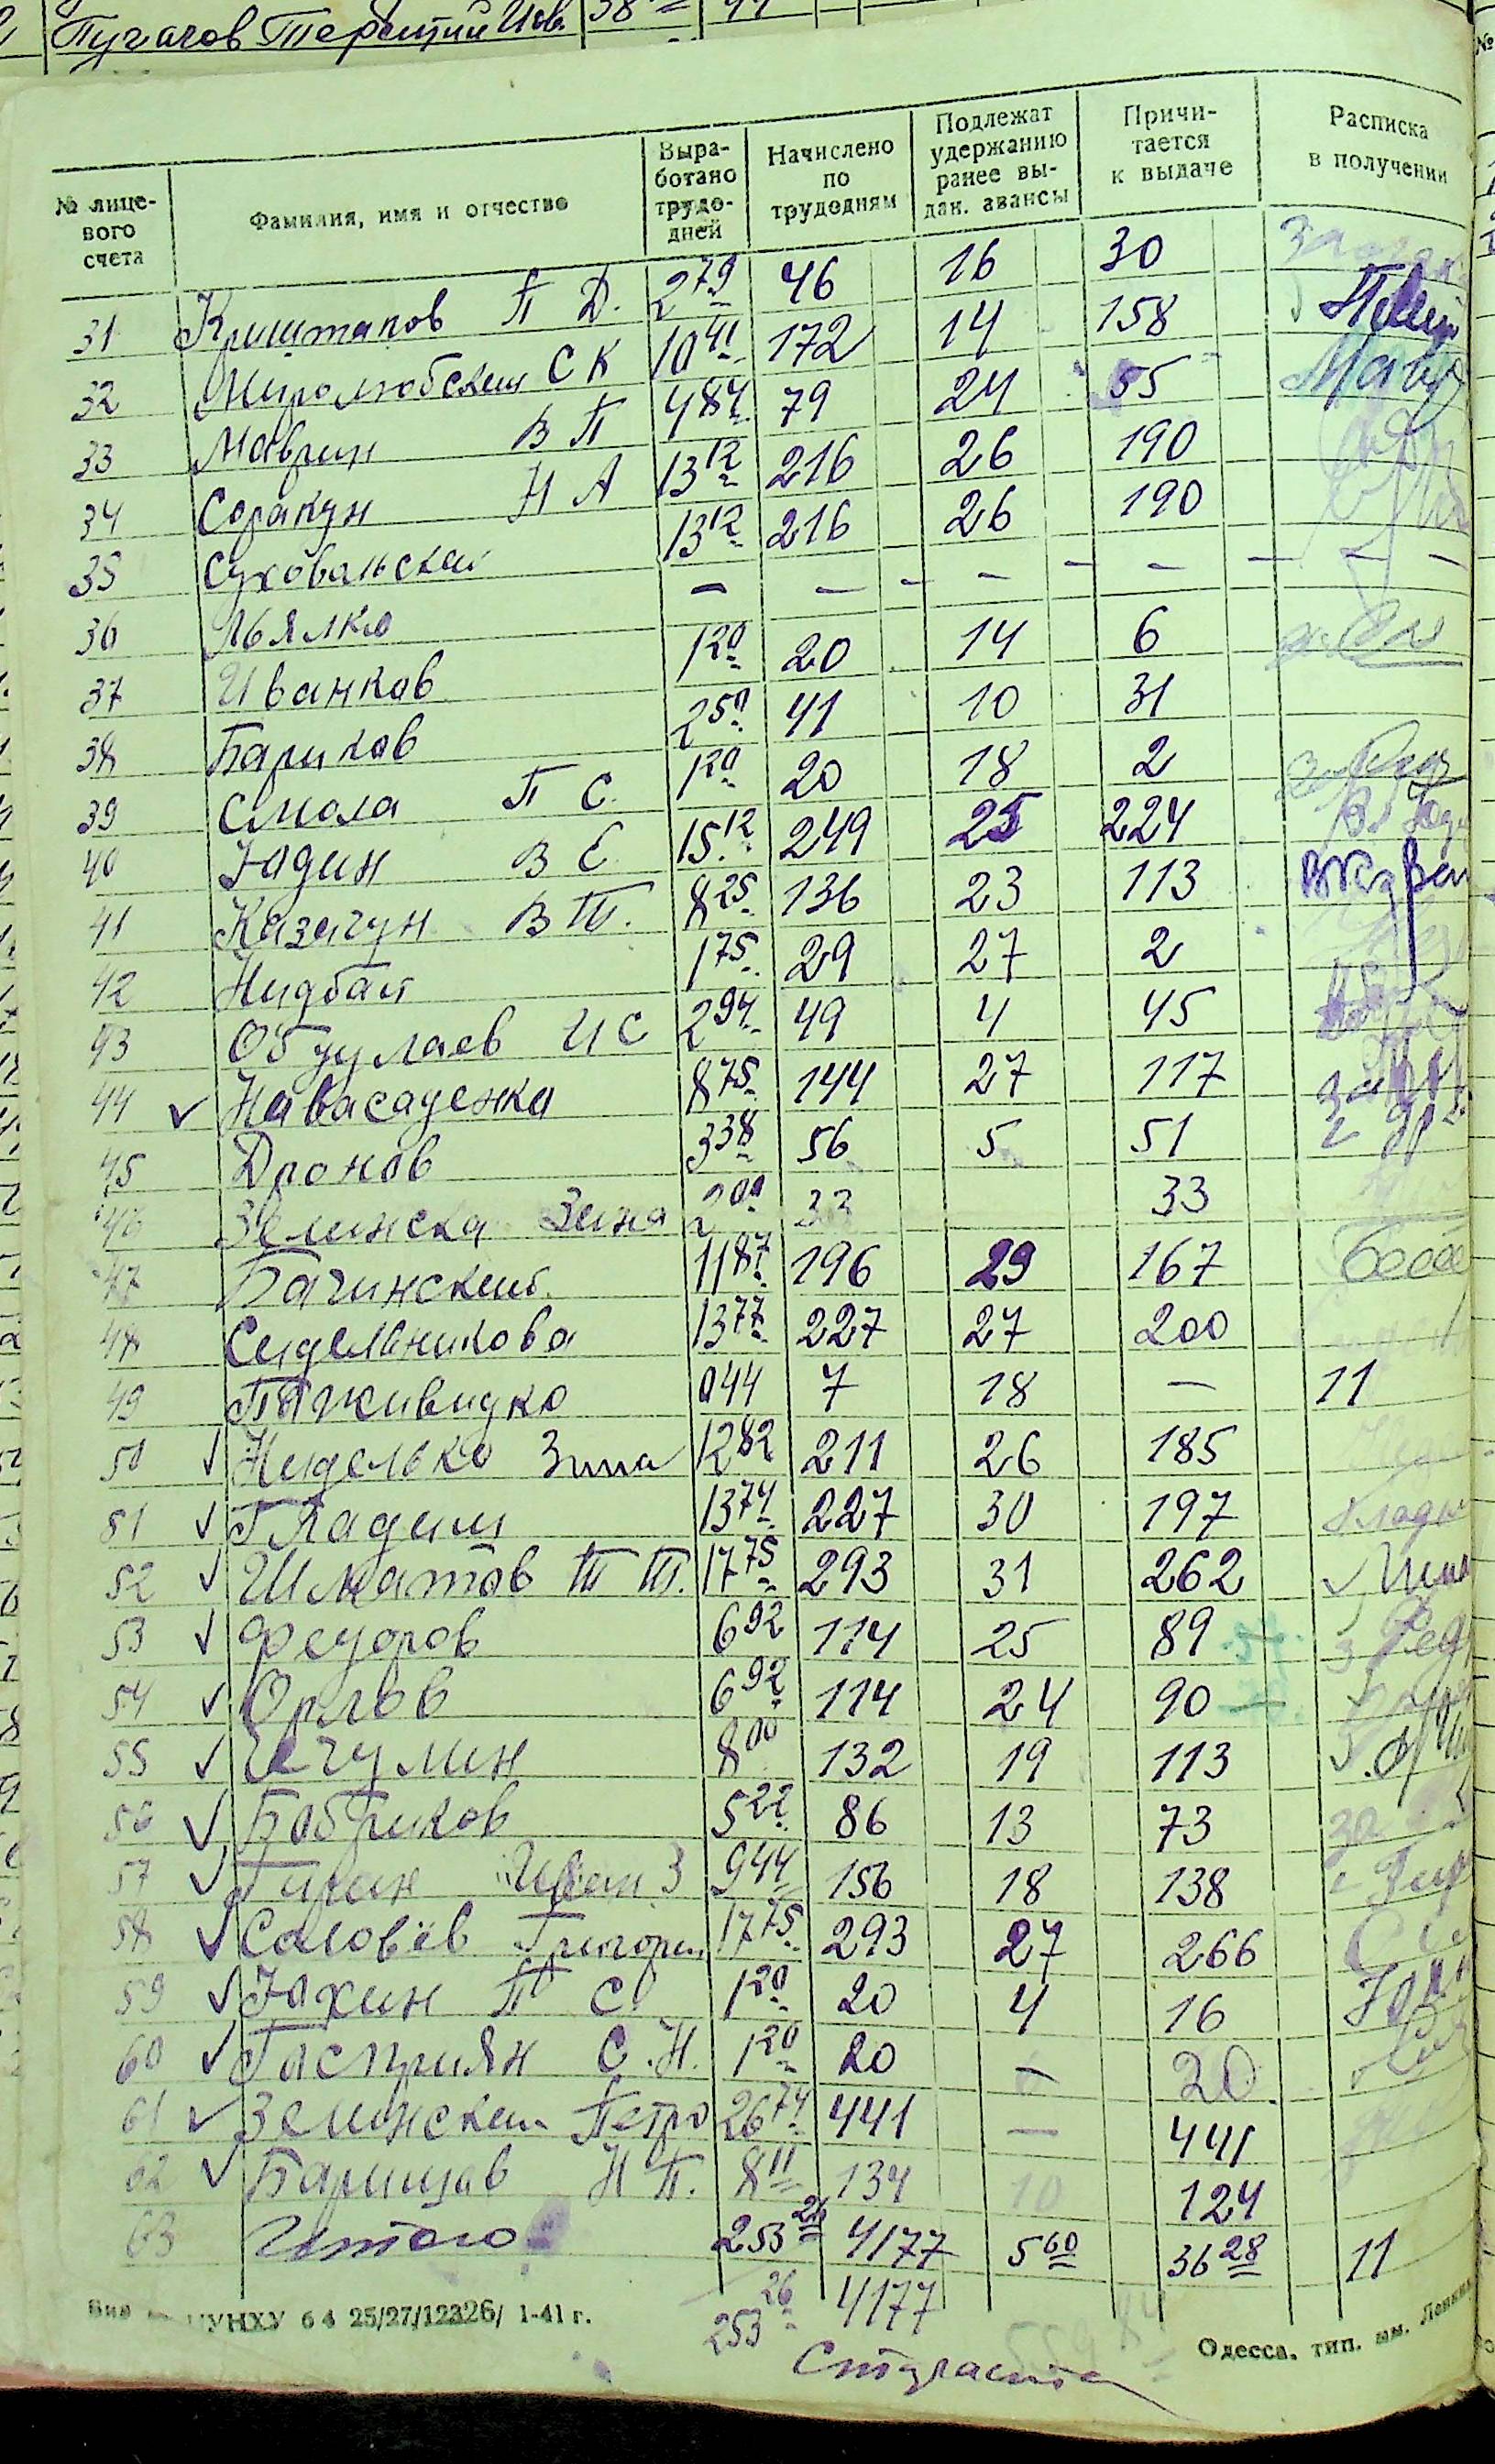 Пугачов Терентий Ив. 38 49
№ лице-вого счета | Фамилия, имя и отчество | Выра-ботано трудо-дней | Начислено по трудодням | Подлежат удержанию ранее вы-дан. авансы | Причи-тается к выдаче | Расписка в получении
31 Криштапов П Д. 2 79 46 16 30
32 Миролюбский С К 10 41 172 14 158
33 Маврин В П 4 84 79 24 55
34 Соракун Н А 13 12 216 26 190
35 Суховальский 13 12 216 26 190
36 Льялко — — — —
37 Иванков 1 20 20 14 6
38 Бариков 2 50 41 10 31
39 Смола П С. 1 20 20 18 2
40 Юдин В Е. 15 12 249 25 224
41 Казачун В Т. 8 25 136 23 113
42 Нидбай 1 75 29 27 2
43 Обдулаев И С 2 94 49 4 45
44 ✓ Навасаденка 8 75 144 27 117
45 Дронов 3 38 56 5 51
46 Зелинска Зина 2 00 33 33
47 Бачинский 11 87 196 29 167
48 Сидельникова 13 77 227 27 200
49 Пачкивидко 0 44 7 18 — 11
50 ✓ Ниделько Зина 12 82 211 26 185
51 ✓ Гладиш 13 74 227 30 197
52 ✓ Шматов Т Т. 17 75 293 31 262
53 ✓ Федоров 6 92 114 25 89
54 ✓ Орлов 6 92 114 24 90
55 ✓ Чечулин 8 00 132 19 113
56 ✓ Бобриков 5 22 86 13 73
57 ✓ Гирин Иван З 9 44 156 18 138
58 ✓ Саловьёв Григорий 17 75 293 27 266
59 ✓ Юхин П С 1 20 20 4 16
60 ✓ Гасприян С. Н. 1 20 20 — 20
61 ✓ Зелинский Петро 26 74 441 — 441
62 ✓ Баришов Н П. 8 11 134 10 124
63 Итого 253 26 4177 5 60 36 28 11
253 26 4177
ЦУНХУ 64 25/27/12326/ 1-41 г.
Одесса. тип. им. Ленина